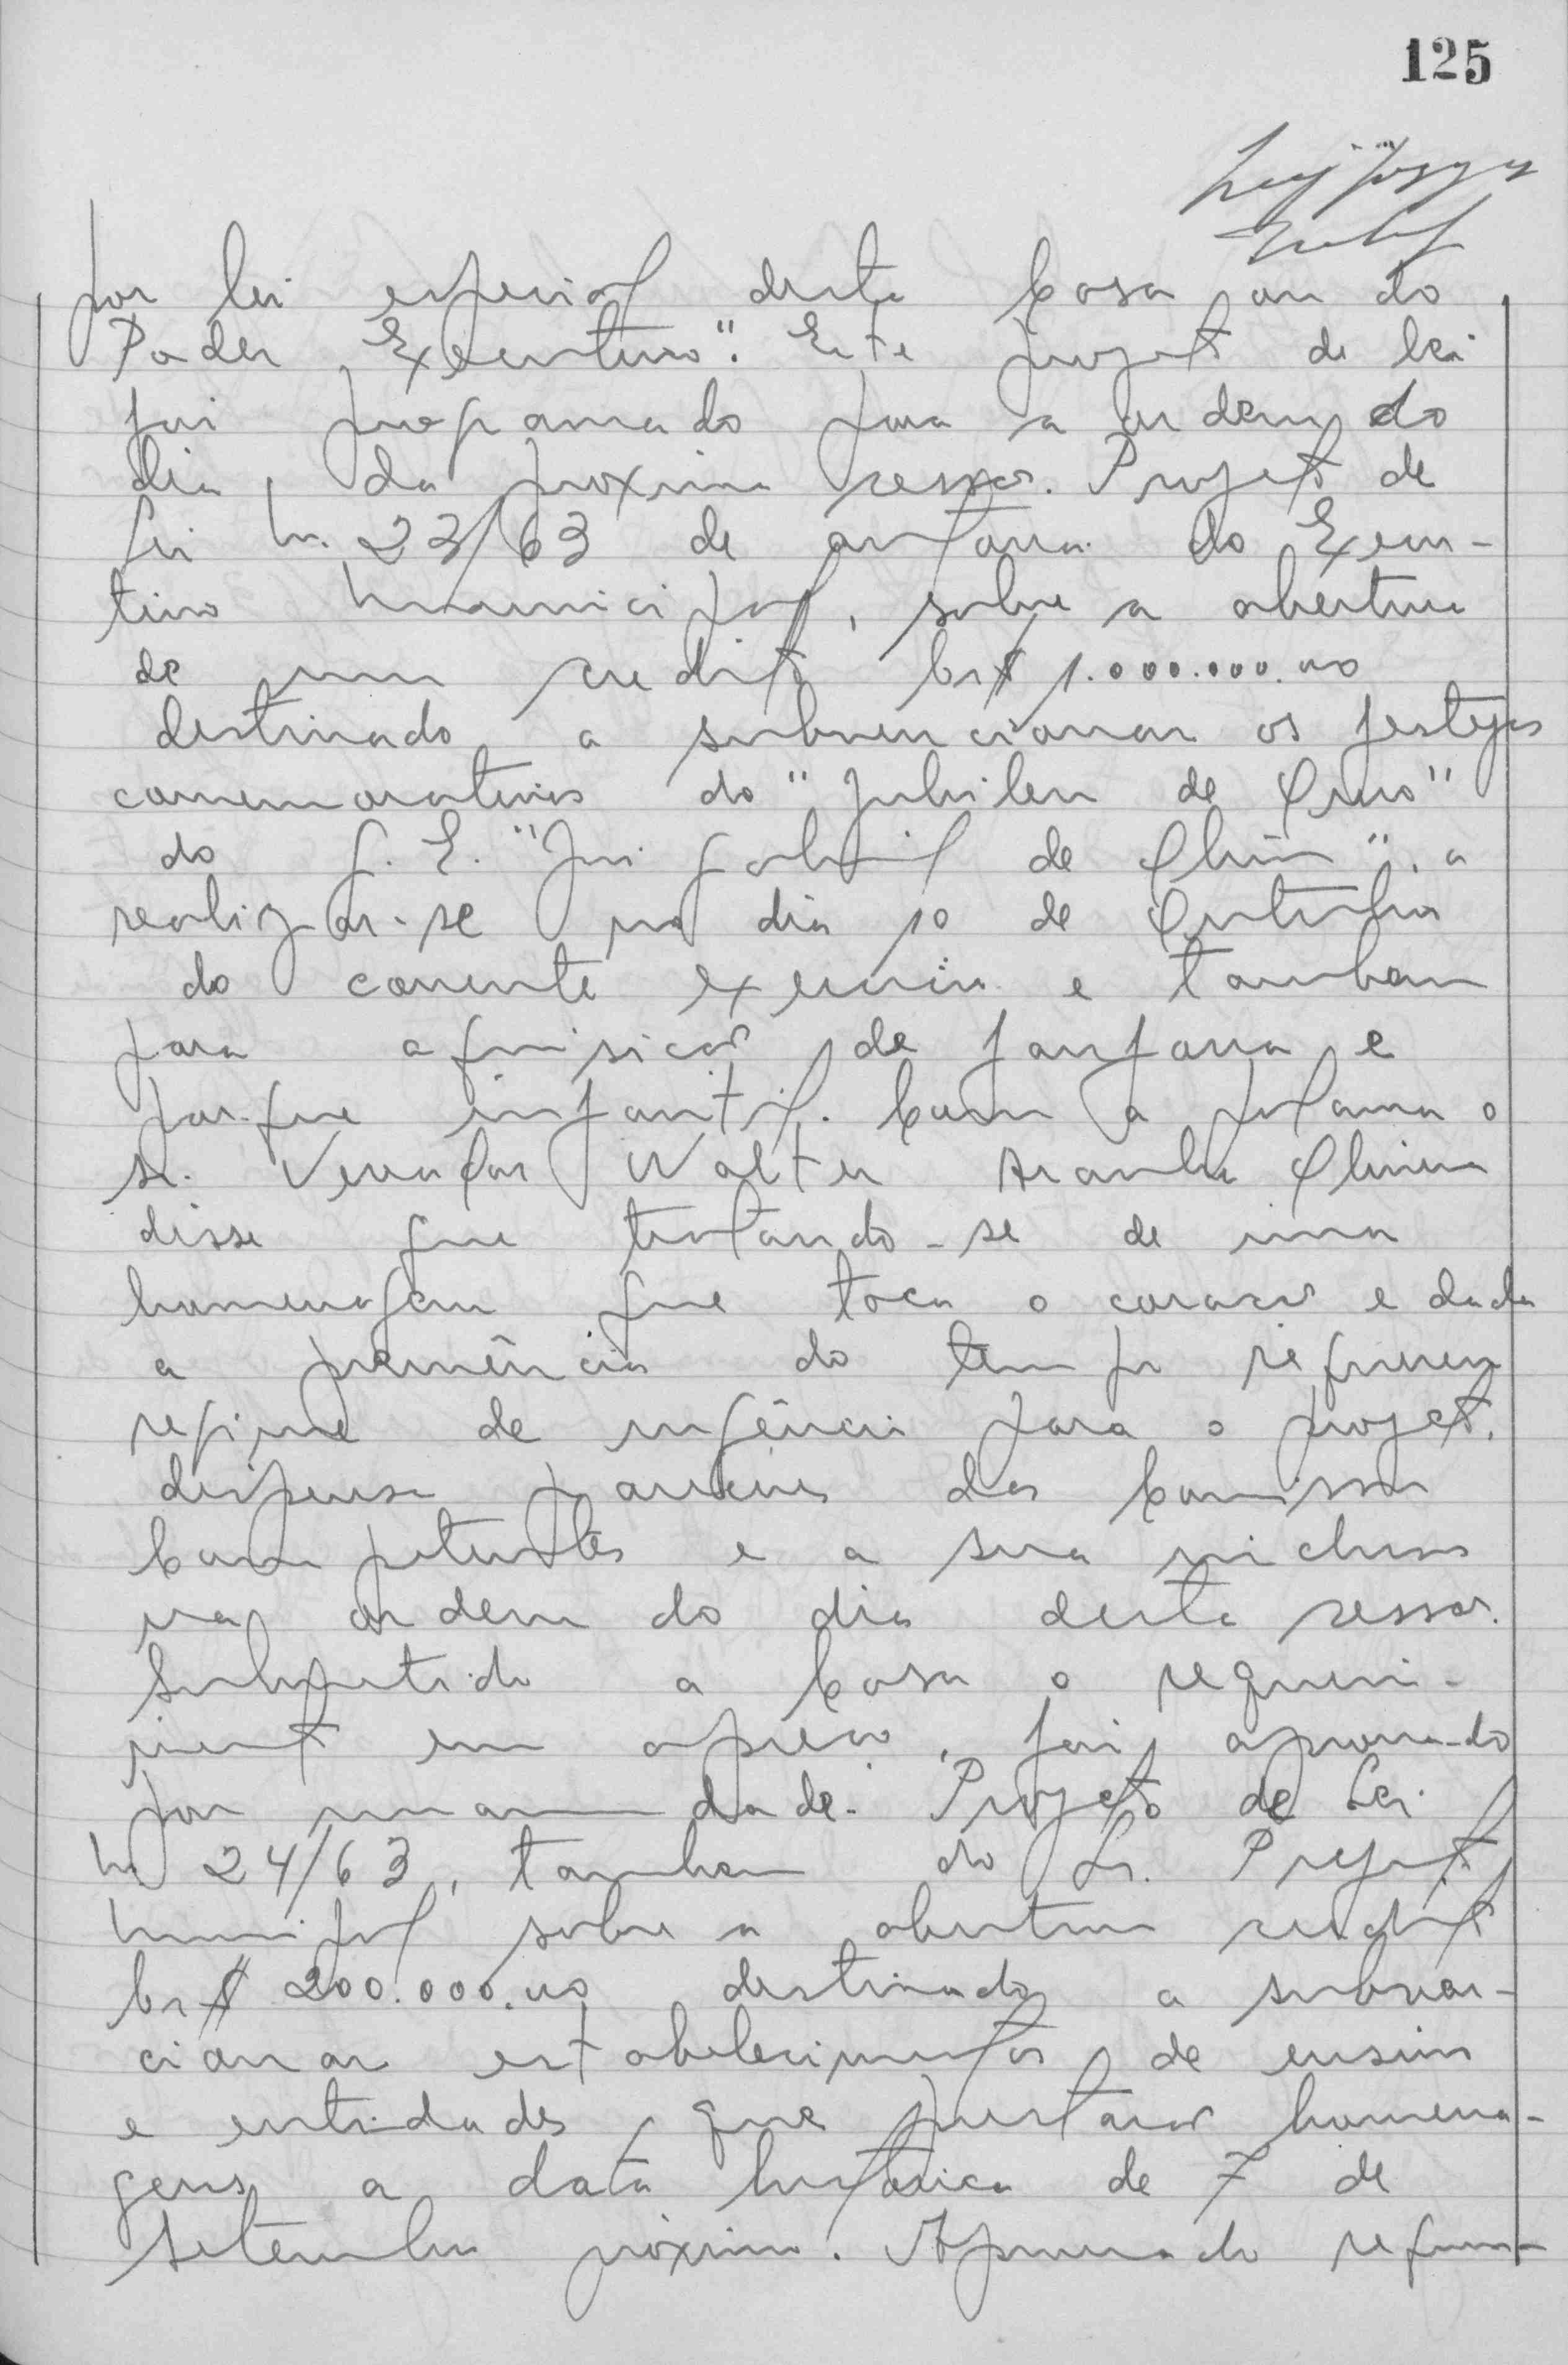 125
por lei especial desta Casa ou do
Poder Executivo". Este projeto de lei
foi programado para a ordem do
dia da proxima sessão. Projeto de
lei n. 23/63 de autoria do Execu-
tivo Municipal, sobre a abertura
de um credito Cr$ 1.000.000.00
destinado a subvencionar os festejos
comemorativos do "Jubileu de Ouro"
do G. E. "Gabriel de Oliveira", a
realizar-se no dia 10 de Outubro
do corrente exercicio e tambem
para aquisição de fanfarra e
parque infantil. Com a palavra o
sr. Vereador Walter Aranha Oliveira
disse que tratando-se de uma
homenagem que toca o coração e dada
a premência do tempo requereu
regime de urgência para o projeto,
dispensa pareceres das Comissões
Competentes e a sua inclusão
na ordem do dia desta sessão.
Submetido a Casa o requeri-
mento em apreço, foi aprovado
por unanimidade. Projeto de Lei
n. 24/63, tambem do Sr. Prefeito
Municipal sobre a abertura credito
Cr$ 200.000.00 destinado a subven-
cionar estabelecimentos de ensino
e entidades que prestarão homena-
gens a data historica de 7 de
Setembro próximo. Aprovado requeri-